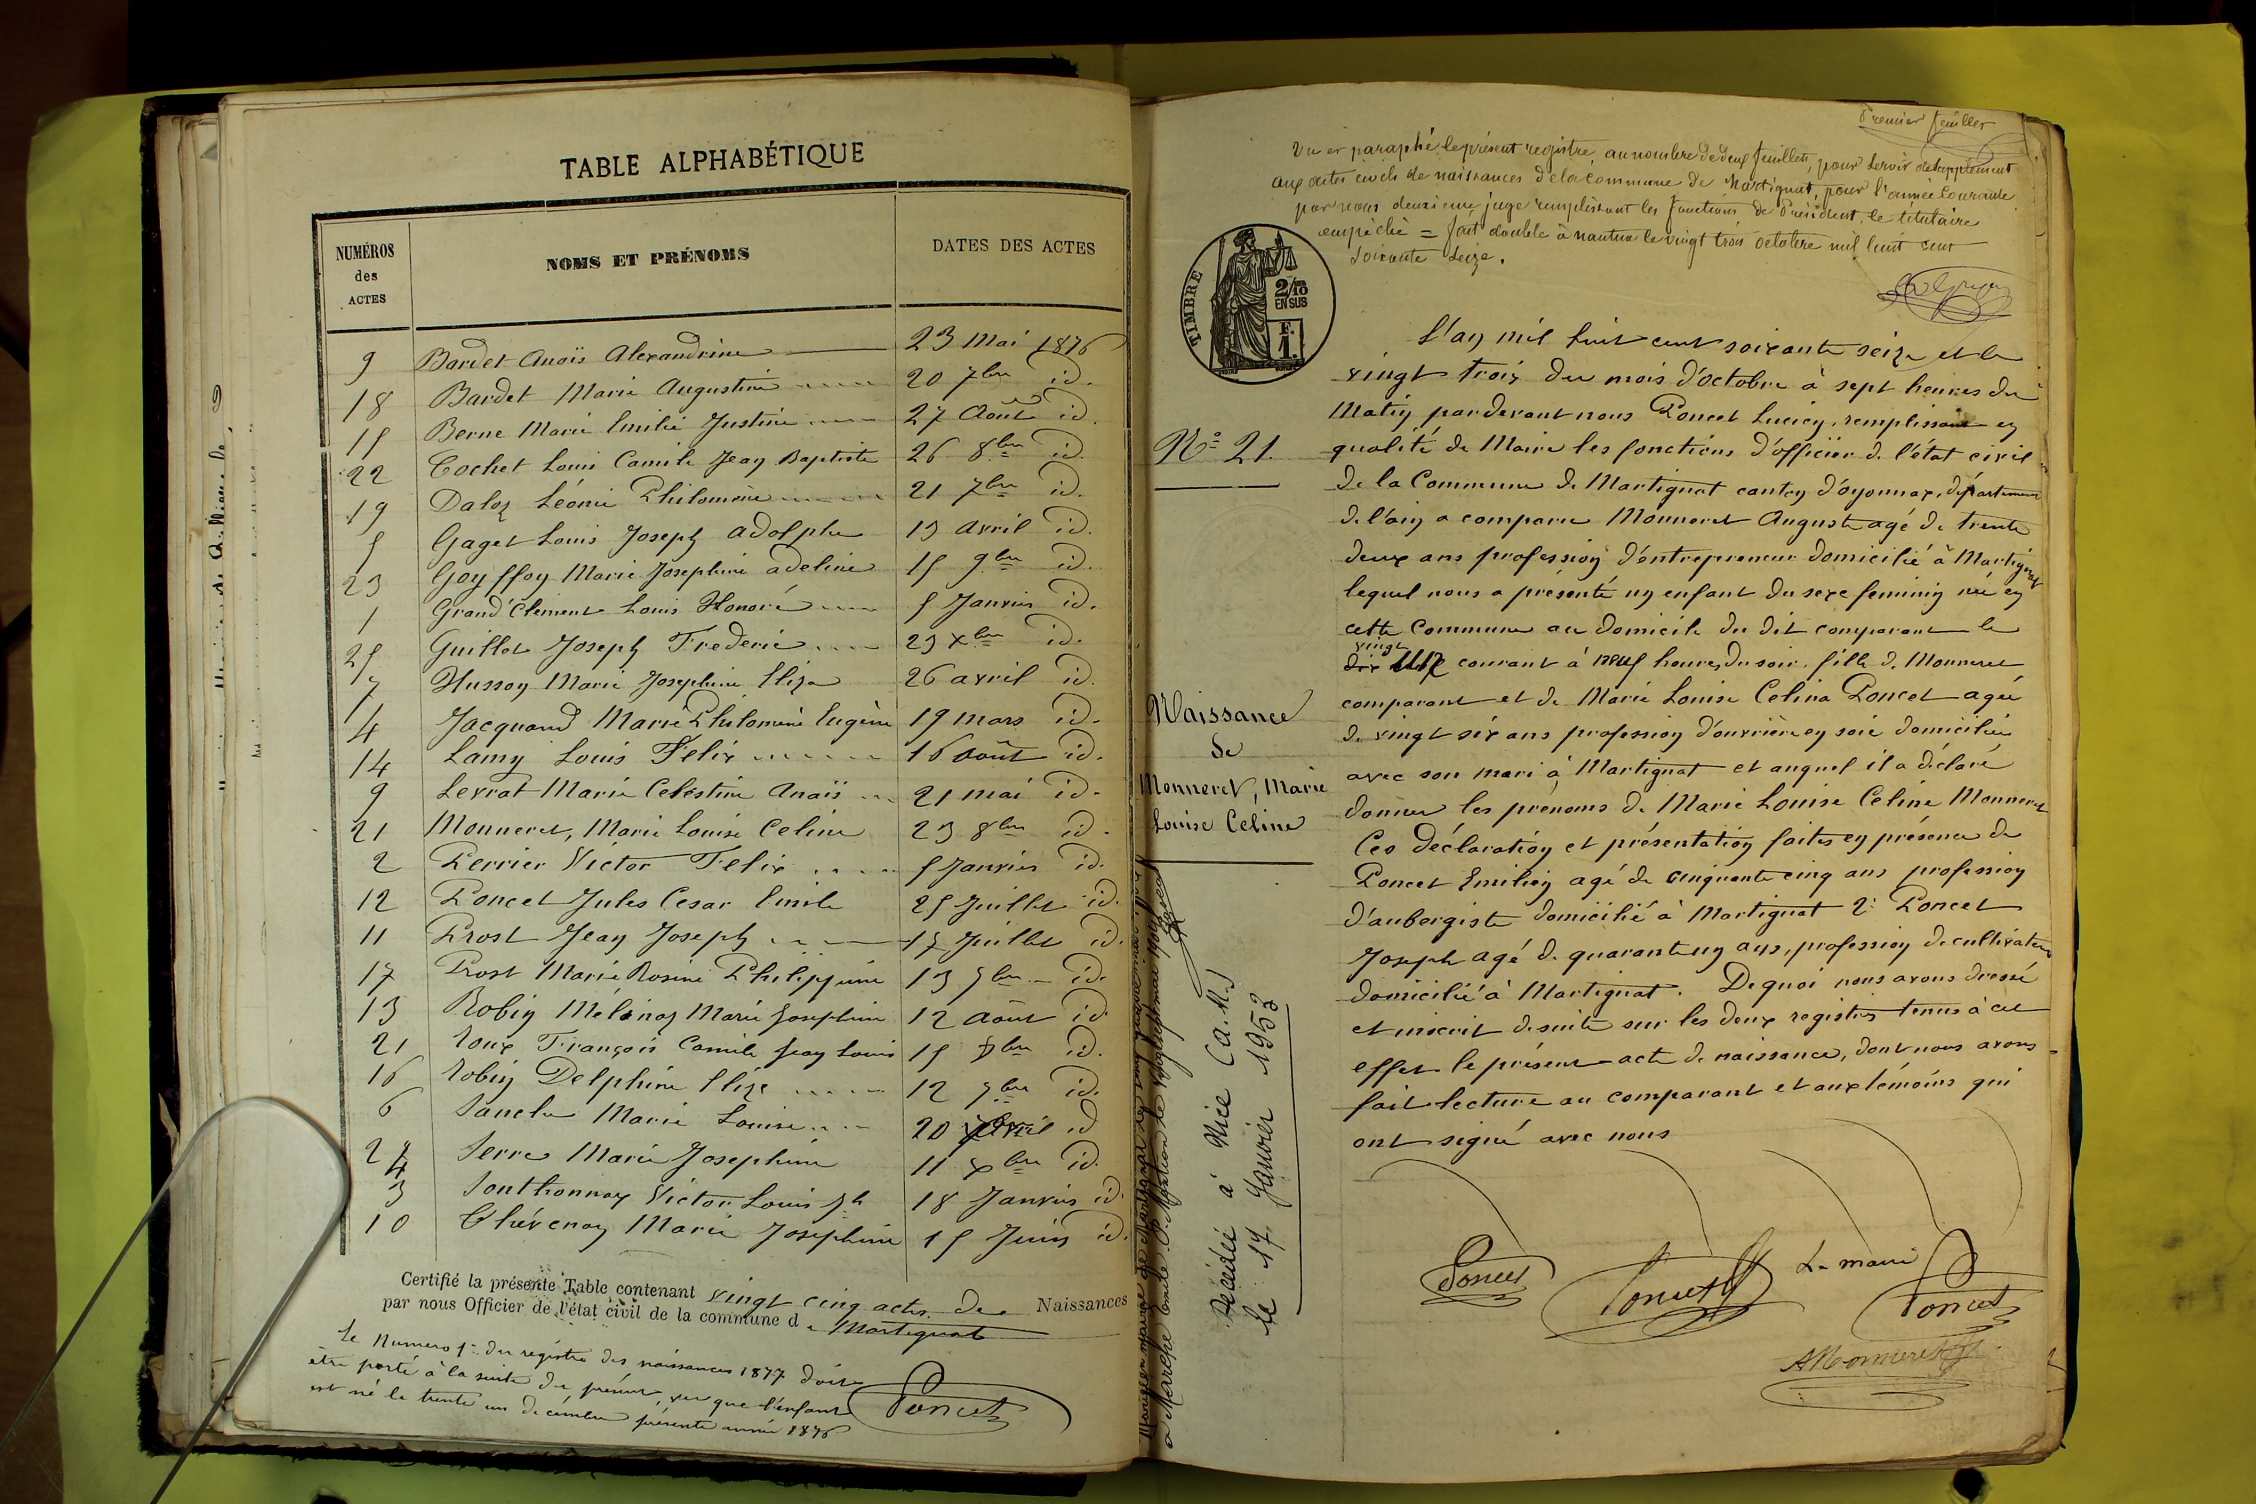 TABLE ALPHABÉTIQUE
NUMÉROS des ACTES
NOMS ET PRÉNOMS
DATES DES ACTES
9 Bardet Anaïs Alexandrine 23 Mai 1876
18 Bardet Marie Augustine 20 7bre id.
15 Berne Marie Emilie Justine 27 Août id.
22 Cochet Louis Camile Jean Baptiste 26 8bre id.
19 Daloz Léonie Philomène 21 7bre id.
5 Gaget Louis Joseph Adolphe 13 avril id.
23 Goyffon Marie Josephine adeline 15 9bre id.
1 Grand'Clement Louis Honoré 5 Janvier id.
25 Guillot Joseph Frederic 23 xbre id.
7 Husson Marie Josephine Eliza 26 avril id.
4 Jacquand Marie Philomène Eugène 19 mars id.
14 Lamy Louis Felix 16 août id.
9 Levrat Marie Celéstine Anaïs 21 mai id.
21 Monneret, Marie Louise Celine 23 8bre id.
2 Perrier Victor Felix 5 Janvier id.
12 Poncet Jules Cesar Emile 25 Juillet id.
11 Prost Jean Joseph 15 Juillet id.
17 Prost Marie Rosine Philippine 13 7bre id.
13 Robin Mélina Marie Josephine 12 août id.
21 Roux François Camile Jean Louis 15 8bre id.
16 Robin Delphine Elize 12 7bre id.
6 Marie Louise 20 avril id
24 Serre Marie Josephine 11 xbre id.
3 Sonthonnax Victor Louis Jh 18 Janvier id.
10 Thévenon Marie Josephine 15 Juin id.
Certifié la présente Table contenant vingt cinq actes de Naissances
par nous Officier de l'état civil de la commune de Martignat
Le Numero 1er du registre des naissances 1877 doit
être porté à la suite du présent, vu que l'enfant
est né le trente un décembre présente année 1876
Poncet
Premier feuillet
Vu et paraphé le présent registre, au nombre de deux feuillets, pour servir de supplément
aux actes civils de naissances de la commune de Martignat, pour l'année courante
par nous deuxième juge remplissant les fonctions de Président, le titulaire
empêché = fait double à nantua le vingt trois octobre mil huit cent
soixante seize.
TIMBRE
2/10 EN SUS
F. 1.
L'an mil huit cent soixante seize et le
vingt trois du mois d'octobre à sept heures du
Matin pardevant nous Poncet Lucien, remplissant en
qualité de Maire les fonctions d'officier de l'état civil
de la Commune de Martignat canton d'oyonnax, département
de l'ain a comparu Monneret Auguste agé de trente
deux ans profession d'entrepreneur domicilié à Martignat
lequel nous a présenté un enfant du sexe feminin née en
cette Commune au domicile du dit comparant le
vingt
dix une courant à neuf heures du soir, fille de Monneret
comparant et de Marie Louise Celina Poncet agée
de vingt six ans profession d'ouvrière en soie domiciliée
avec son mari à Martignat et auquel il a déclaré
donner les prénoms de Marie Louise Celine Monneret
Ces déclaration et présentation faites en présence de
Poncet Emilien agé de cinquante cinq ans profession
d'aubergiste domicilié à Martignat 2° Poncet
Joseph agé de quarante un ans, profession de cultivateur
domicilié à Martignat. De quoi nous avons dressé
et inscrit de suite sur les deux registres tenus à cet
effet le présent acte de naissance, dont nous avons
fait lecture au comparant et aux témoins qui
ont signé avec nous
Le maire
Poncet
Poncet
Poncet
A Monneret
N° 21.
Naissance
de
Monneret, Marie
Louise Celine
Décédée à Nice (A.M.)
le 17 Janvier 1953